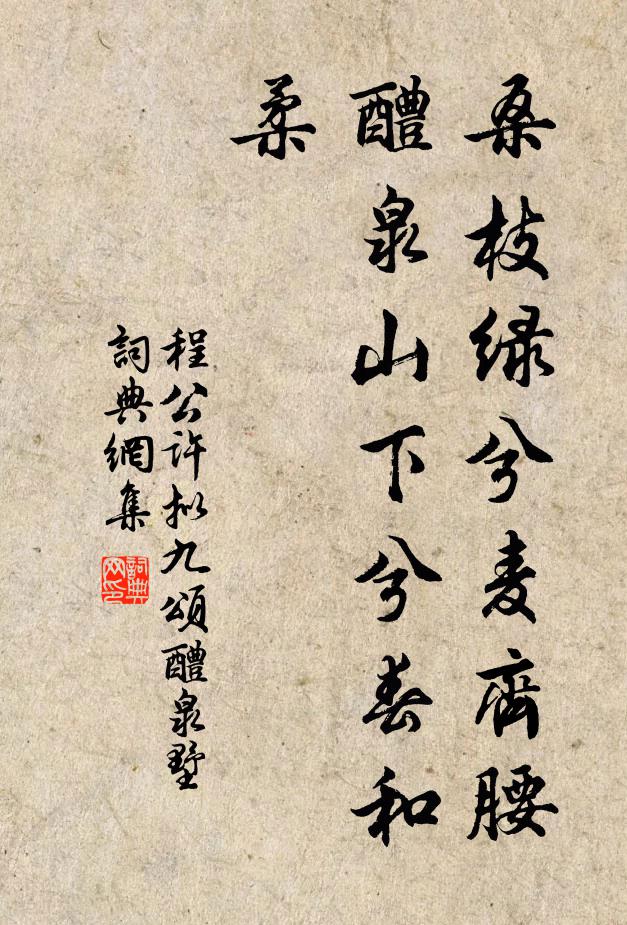 桑枝绿兮麦齊腰
醴泉山下兮春和
柔
程公许拟九頌醴泉墅
詞典網集
詞典网印